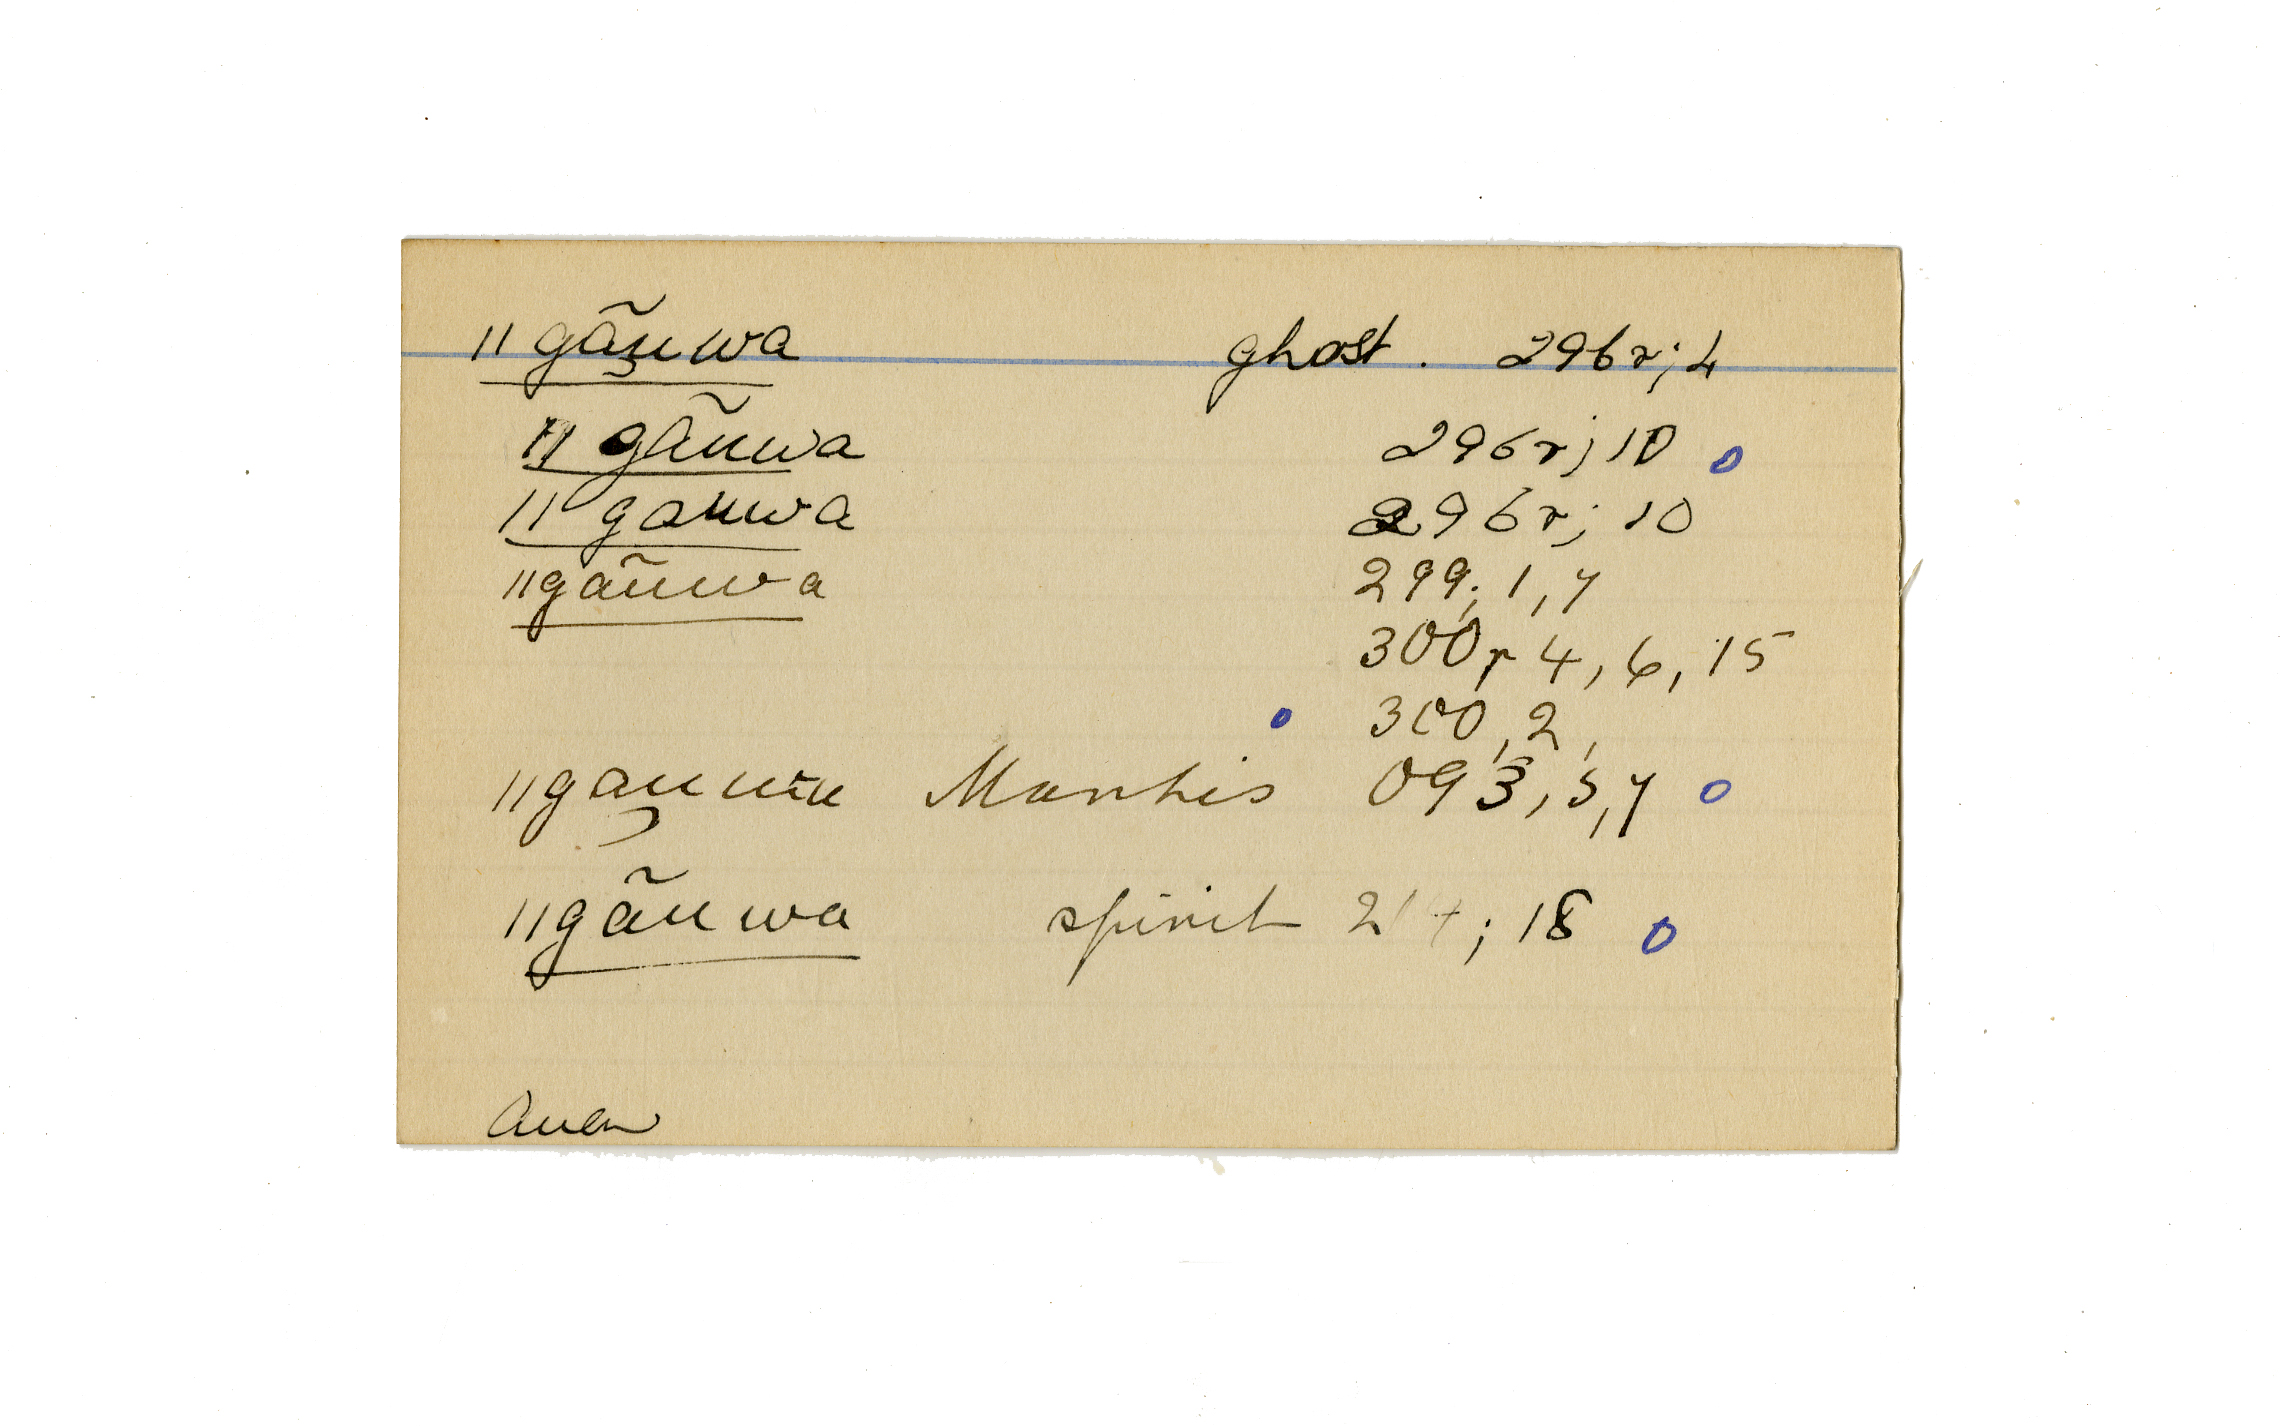 ǁgã̰uwa ghost. 296r; 4
ǁgãuwa 296r; 10
ǁgauwa 296r; 10
ǁgãuwa 299; 1, 7
300r 4, 6, 15
300, 2,
Mantis 093, 5, 7
ǁgãuwa spirit 214; 18
Auen